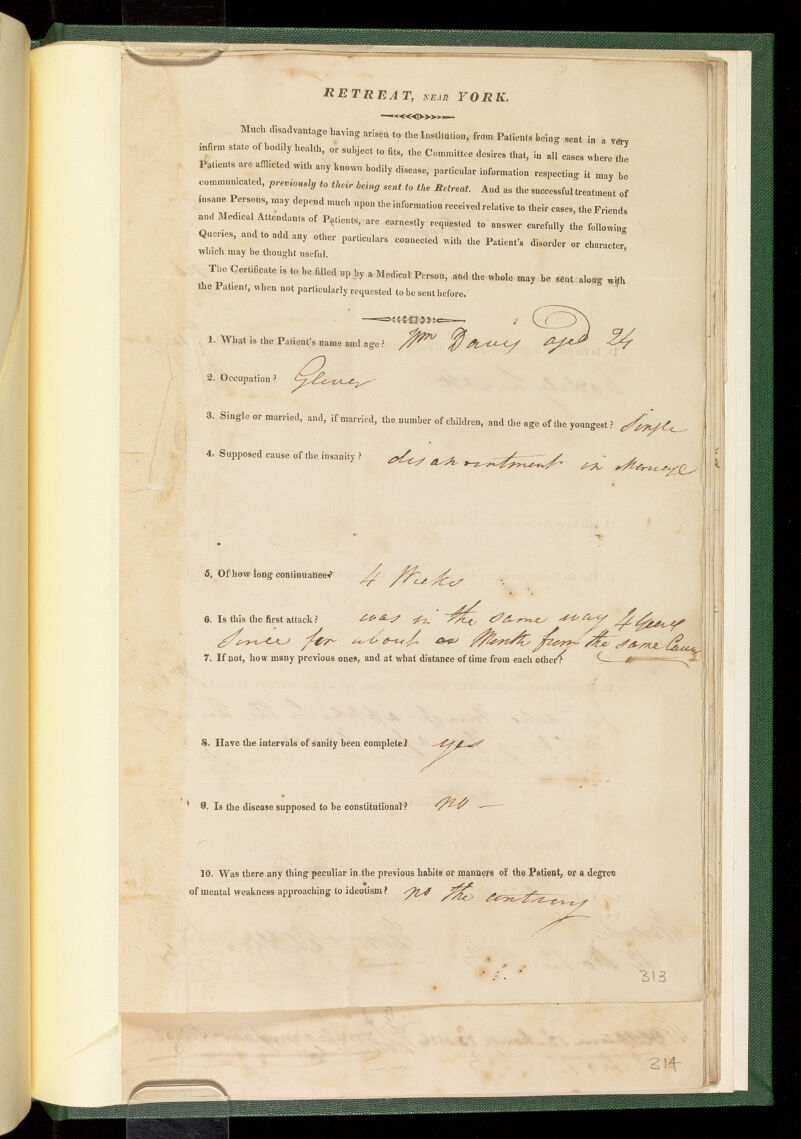 RETREAT, NEAR YORK.
Much disadvantage having arisen to the Institution, from Patients being sent in a very
infirm state of bodily health, or subject to fits, the Committee desires that, in all cases where the
Patients are afflicted with any known bodily disease, particular information respecting it may be
communicated, previously to their being sent to the Retreat. And as the successful treatment of
insane Persons, may depend much upon the information received relative to their cases, the Friends
and Medical Attendants of Patients, are earnestly requested to answer carefully the following
Queries, and to add any other particulars connected with the Patient's disorder or character,
which may be thought useful.
The Certificate is to be filled up by a Medical Person, and the whole may be sent along with
the Patient, when not particularly requested to be sent before.
1. What is the Patient's name and age? Wm Davis aged 24
2. Occupation? Glover
3. Single or married, and, if married, the number of children, and the age of the youngest? Single
4. Supposed cause of the insanity? disapointment in
5. Of how long continuance? 4 Weeks
6. Is this the first attack? was in the same way 4 years
Since for about a Month from the same Cause
7. If not, how many previous ones, and at what distance of time from each other?
8. Have the intervals of sanity been complete? yes
9. Is the disease supposed to be constitutional? no —
10. Was there any thing peculiar in the previous habits or manners of the Patient, or a degree
of mental weakness approaching to ideotism? no the contrary
313
314